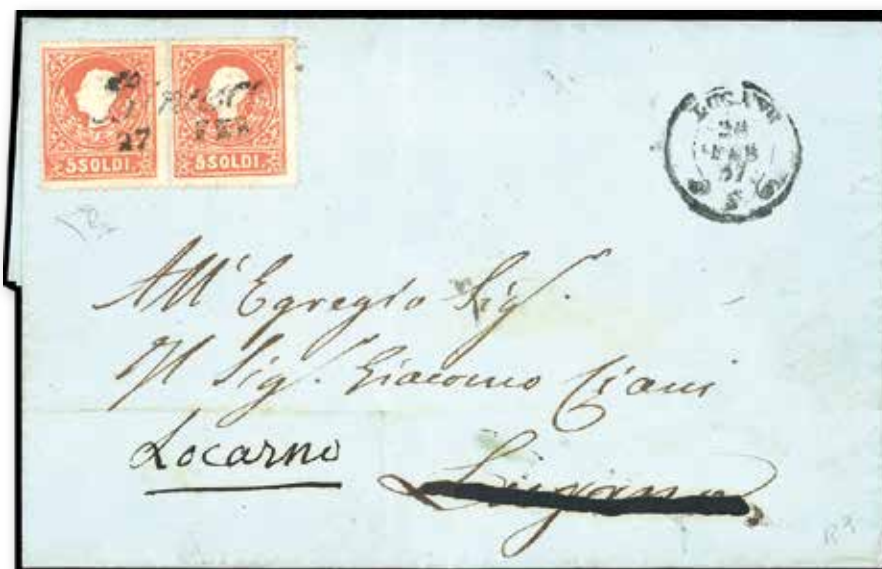 5 SOLDI. 5 SOLDI.
27 FEB
LUGANO
28
FEB
All' Egregio Sig.
Il Sig. Giacomo Ciani
Locarno
Lugano
R